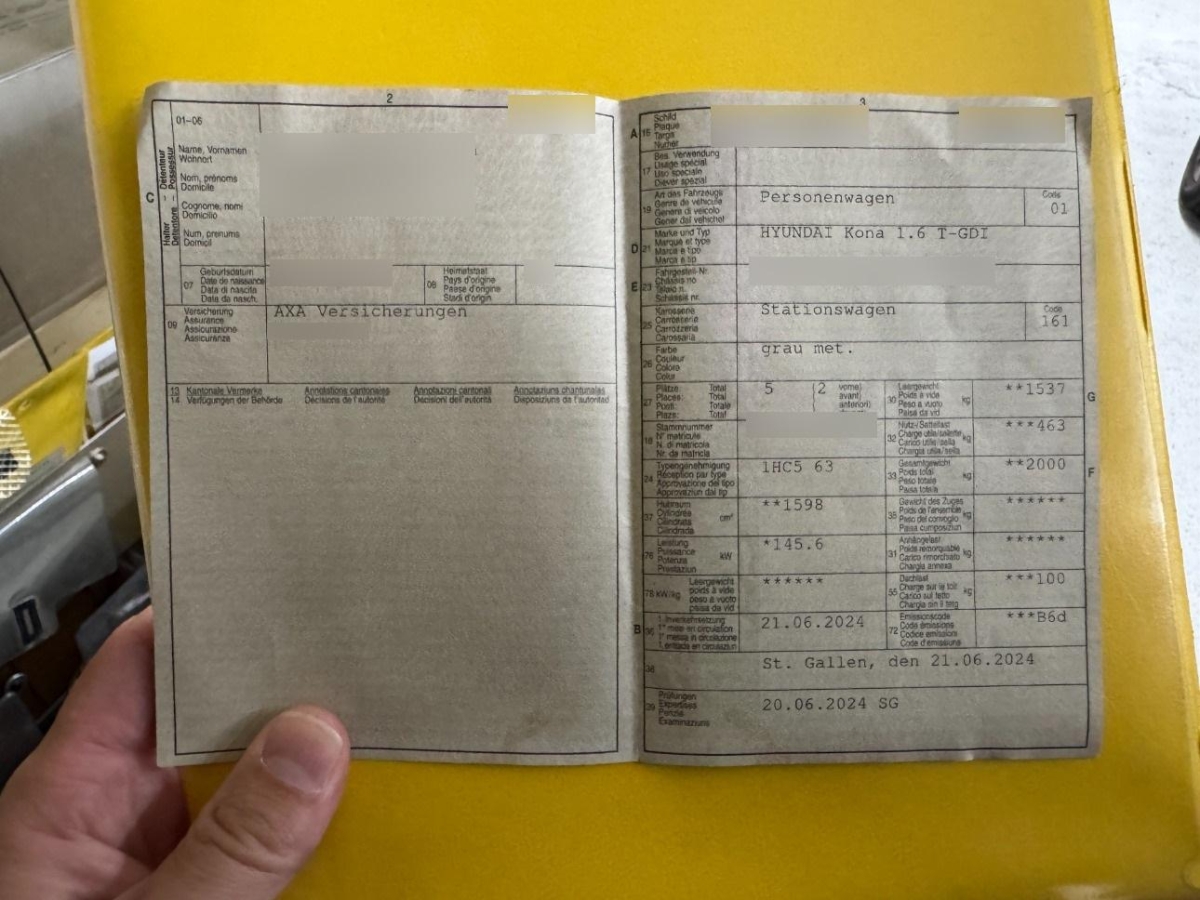 2
01-06
Name, Vornamen
Wohnort
Nom, prénoms
Domicile
Cognome, nomi
Domicilio
Num, prenums
Domicil
C
Halter – Détenteur
Detentore – Possessur
07
Geburtsdatum
Date de naissance
Data di nascita
Data da nasch.
08
Heimatstaat
Pays d'origine
Paese d'origine
Stadi d'origin
09
Versicherung
Assurance
Assicurazione
Assicuranza
AXA Versicherungen
13 Kantonale Vermerke Annotations cantonales Annotazioni cantonali Annotaziuns chantunalas
14 Verfügungen der Behörde Décisions de l'autorité Decisioni dell'autorità Disposiziuns da l'autoritad
3
A 15
Schild
Plaque
Targa
Numer
17
Bes. Verwendung
Usage spécial
Uso speciale
Diever spezial
19
Art des Fahrzeugs
Genre de véhicule
Genere di veicolo
Gener dal vehichel
Personenwagen
Code
01
D 21
Marke und Typ
Marque et type
Marca e tipo
Marca e tip
HYUNDAI Kona 1.6 T-GDI
E 23
Fahrgestell-Nr.
Châssis no
Telaio n.
Schassis nr.
25
Karosserie
Carrosserie
Carrozzeria
Carossaria
Stationswagen
Code
161
26
Farbe
Couleur
Colore
Colur
grau met.
27
Plätze: Total
Places: Total
Posti: Totale
Plazs: Total
5 (2 vorne)
avant)
anteriori)
30
Leergewicht
Poids à vide
Peso a vuoto
Paisa da vid
kg
**1537
G
18
Stammnummer
N° matricule
N. di matricola
Nr. da matricla
32
Nutz-/Sattellast
Charge utile/sellette
Carico utile/sella
Chargia utila/sella
kg
***463
24
Typengenehmigung
Réception par type
Approvazione del tipo
Approvaziun dal tip
1HC5 63
33
Gesamtgewicht
Poids total
Peso totale
Paisa totala
kg
**2000
F
37
Hubraum
Cylindrée
Cilindrata
Cilindrada
cm³
**1598
35
Gewicht des Zuges
Poids de l'ensemble
Peso del convoglio
Paisa cumposiziun
kg
******
76
Leistung
Puissance
Potenza
Prestaziun
kW
*145.6
31
Anhängelast
Poids remorquable
Carico rimorchiato
Chargia annexa
kg
******
78 kW/kg
Leergewicht
poids à vide
peso a vuoto
paisa da vid
******
55
Dachlast
Charge sur le toit
Carico sul tetto
Chargia sin il tetg
kg
***100
B 36
1. Inverkehrsetzung
1re mise en circulation
1a messa in circolazione
1. entrada en circulaziun
21.06.2024
72
Emissionscode
Code émissions
Codice emissioni
Code d'emissiuns
***B6d
38
St. Gallen, den 21.06.2024
39
Prüfungen
Expertises
Perizie
Examinaziuns
20.06.2024 SG